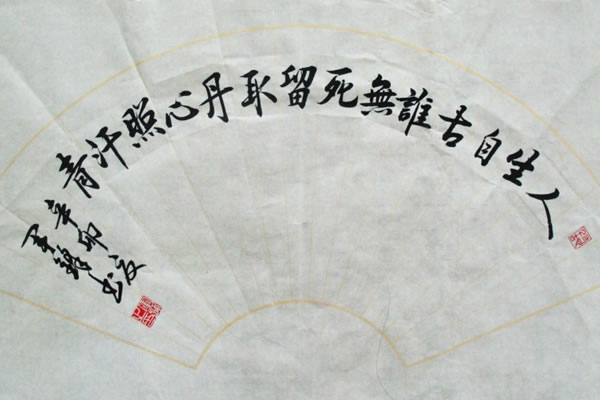 人生自古誰無死留取丹心照汗青
辛卯夏